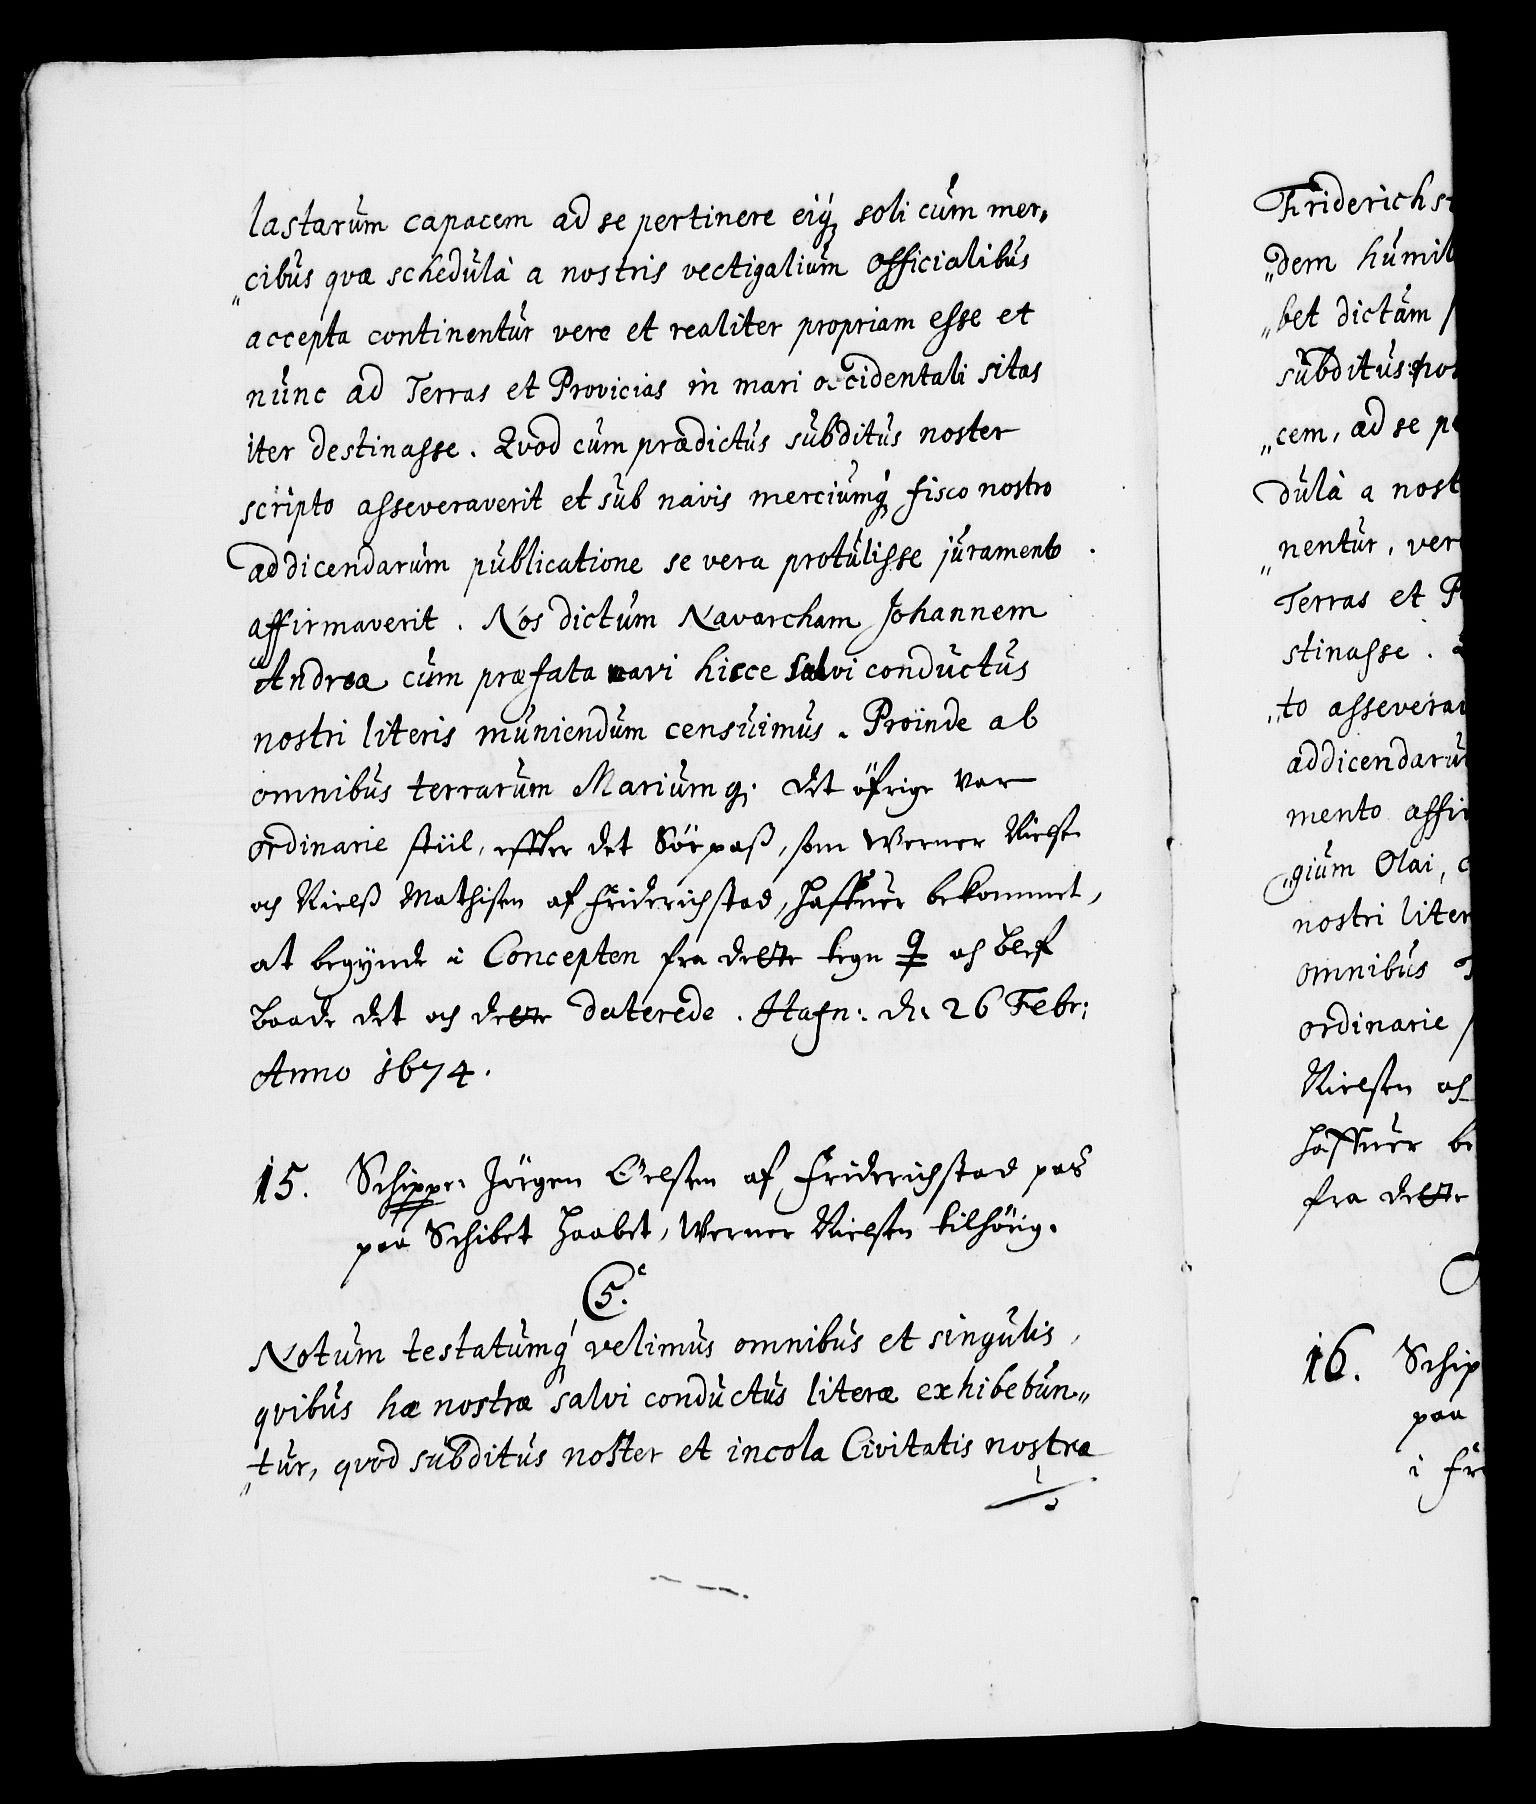 lastarum capacem ad se pertinere eiq; soli cum mer„
„cibus qvæ schedulà a nostris vectigalium officialibus
accepta continentur vere et realiter propriam esse et
nunc ad Terras et Provicias in mari occidentali sitas
iter destinasse. Qvod cum prædictus subditus noster
scripto asseveraverit et sub navis merciumq́ fisco nostro
addicendarum publicatione se vera protulisse juramento
affirmaverit. Nos dictum Navarcham Johannem
Andreæ cum præfata navi hicce salvi conductus
nostri literis muniendum censuimus. Proinde ab
omnibus terrarum Mariumq; det öfrige var
ordinarie stiil, effter det Söepaß, som Werner Nielsen
och Nielß Mathisen af Friderichstad, haffuer bekommet,
at begynde i Concepten fra dette tegn og blef
baade det och dette daterede. Hafn: d. 26 Febr:
Anno 1674.
15. Schipper Jörgen Oelsen af Friderichstad pas
paa Schibet Haabet, Werner Nielsen tilhörig.
C5.
Notum testatumq́ velimus omnibus et singulis,
qvibus hæ nostræ salvi conductus literæ exhibebun„
„tur, qvod subditus noster et incola Civitatis nostræ
Friderichs
„dem humil
„bet dictam
subditus nos
„cem, ad se pe
dulà a nost
„nentur, ver
Terras et P
stinasse.
„to asseverav
addicendaru
mento affir
„gium Olai,
nostri liter
omnibus
ordinarie
Nielsen och
haffuer be
fra dette
16. Schip
paa
i Fri